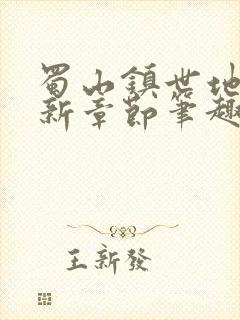 蜀山鎮世地
新章節筆趣
王新發